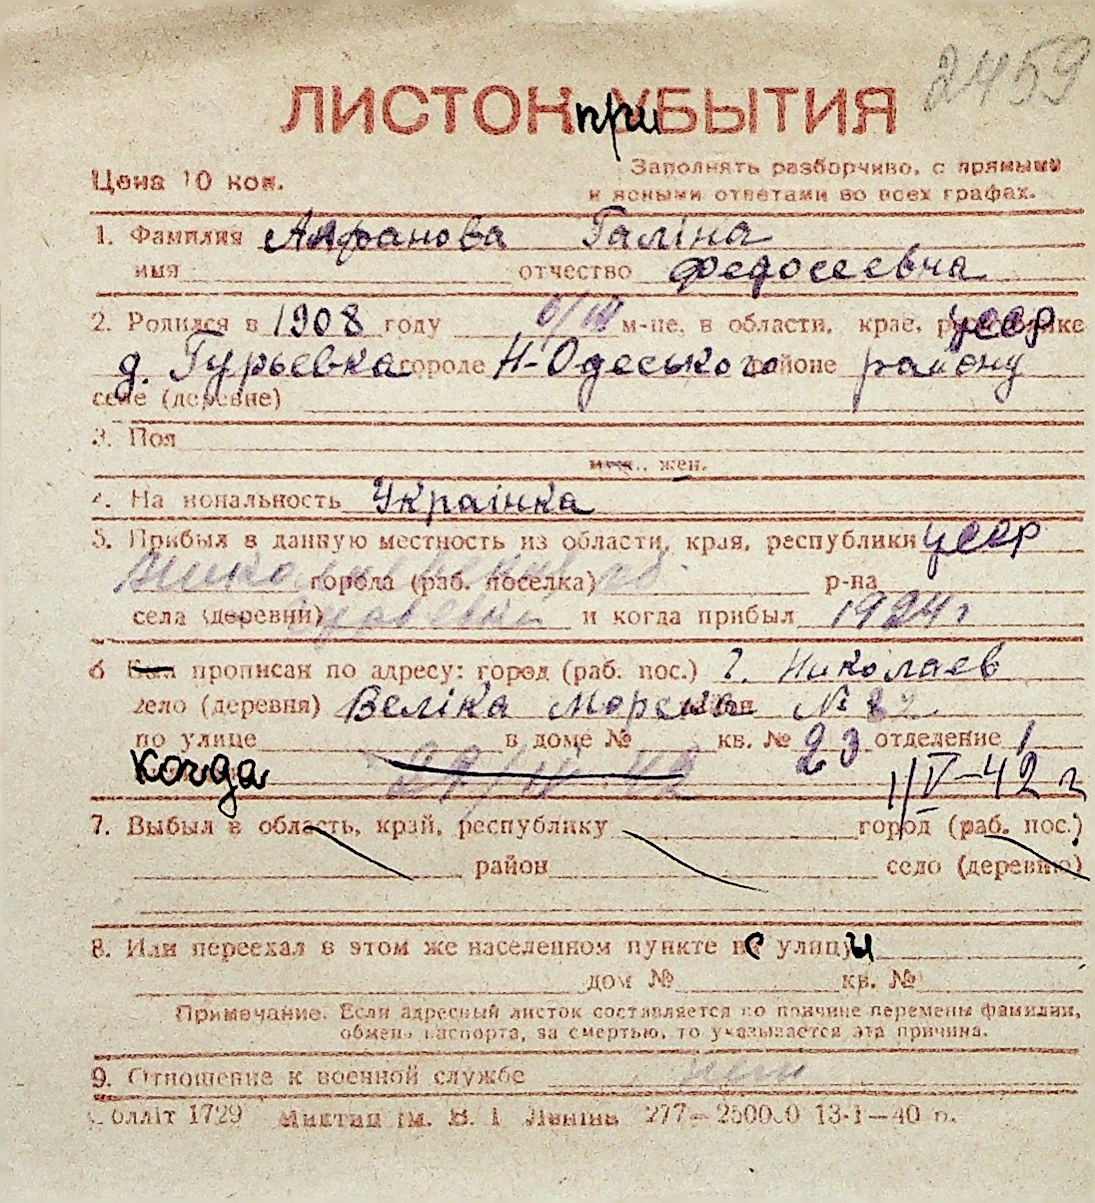 2459
ЛИСТОК прибытия
Цена 10 коп.
Заполнять разборчиво, с прямыми
и ясными ответами во всех графах.
1. Фамилия Апранова Галіна
имя отчество Федосеевча
2. Родился в 1908 году м-це, в области, крае, республике усср
д. Гурьевка городе Н-Одеського районе району
селе (деревне)
3. Пол
муж., жен.
4. Национальность Украінка
5. Прибыл в данную местность из области, края, республики усср
Николаевская об. города (раб. поселка) р-на
села (деревни) Гурьевки и когда прибыл 1924 г
6 Был прописан по адресу: город (раб. пос.) г. Николаев
село (деревня) Веліка Морска район № 82
по улице в доме № кв. № 23 отделение 1
когда 29/IV-42 1/V-42 г
7. Выбыл в область, край, республику город (раб. пос.)
район село (деревню)
8. Или переехал в этом же населенном пункте с улицы
дом № кв. №
Примечание. Если адресный листок составляется по причине перемены фамилии,
обмена паспорта, за смертью, то указывается эта причина.
9. Отношение к военной службе нет
Облліт 1729 ім. В. І. Леніна 277—250000 13-1—40 р.